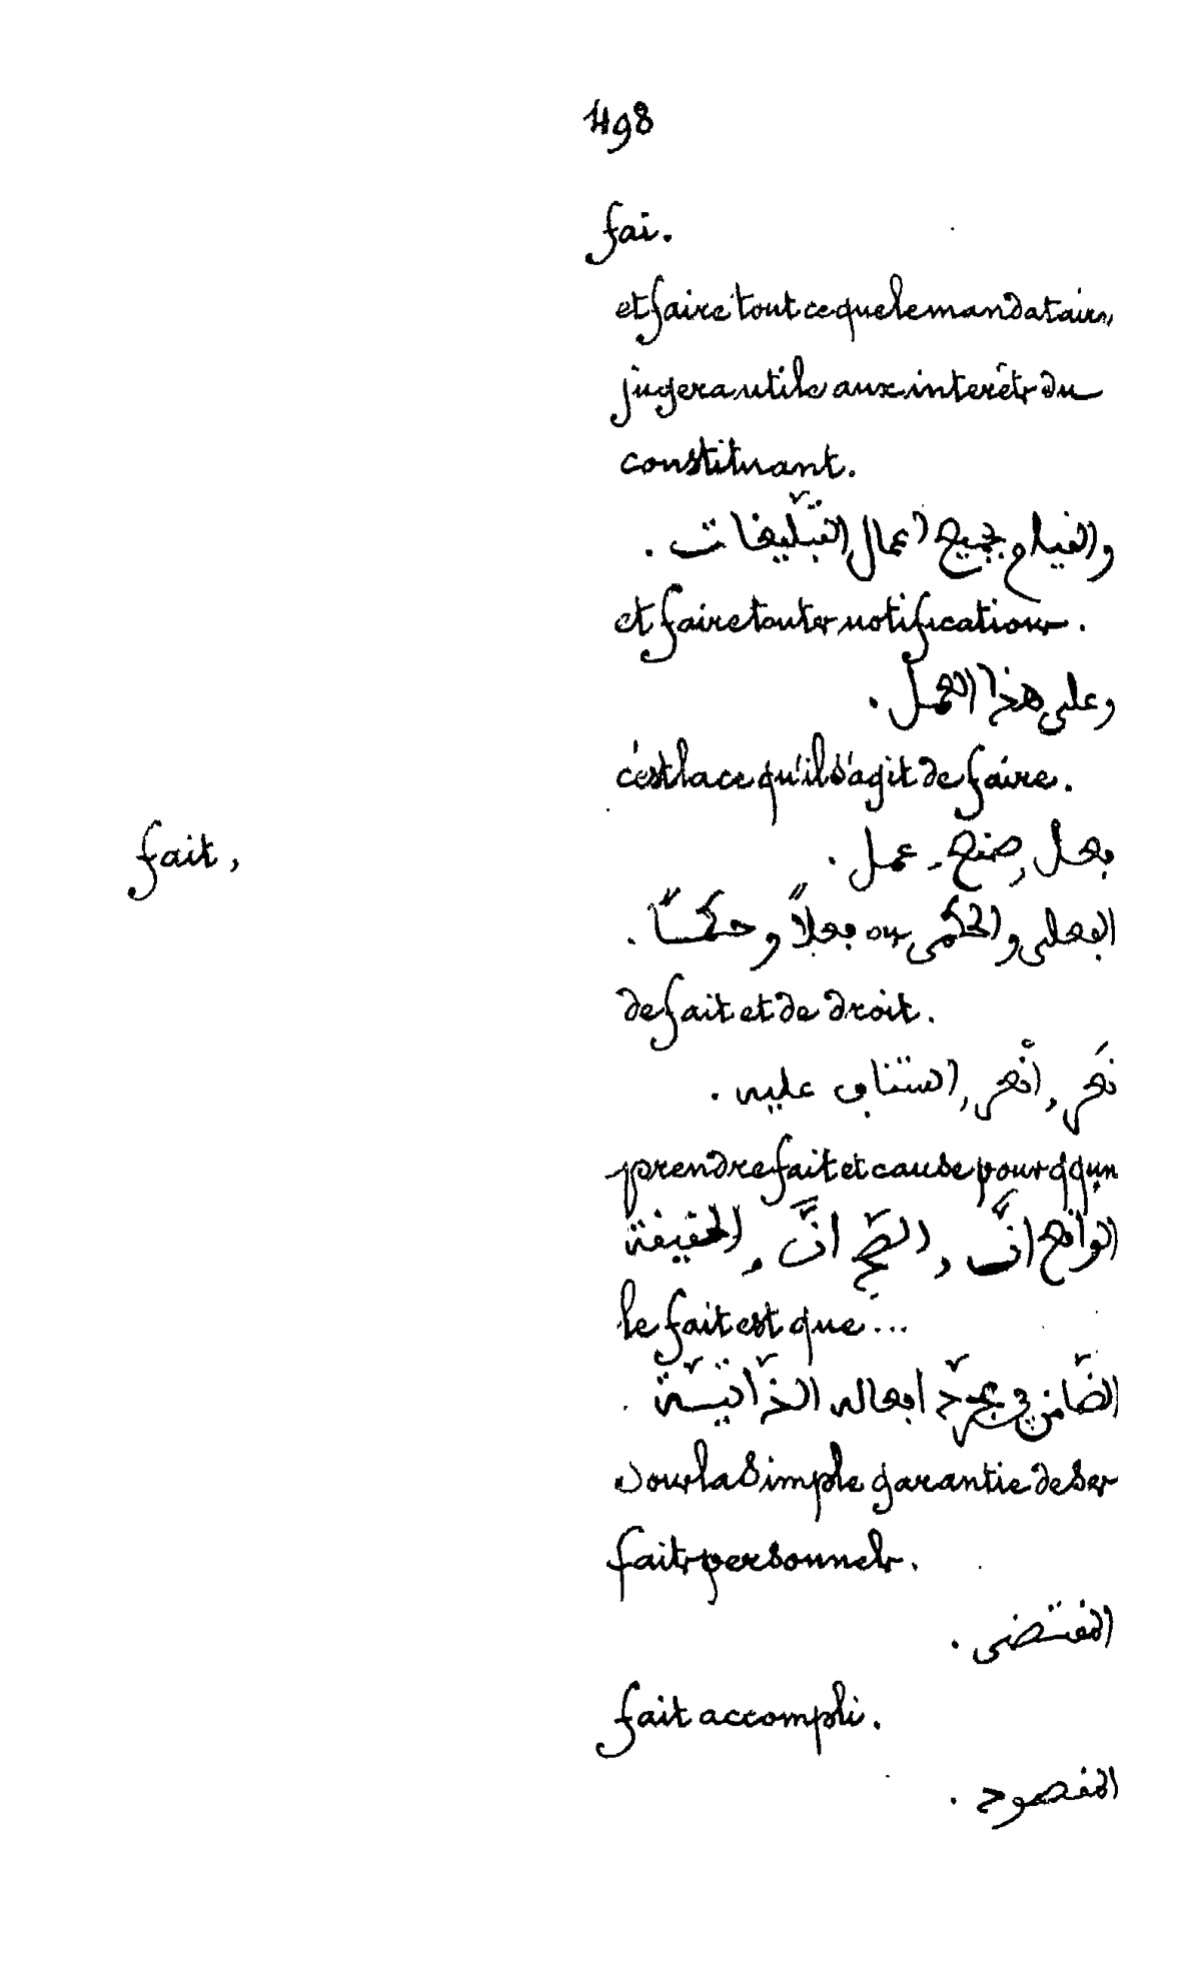 498
fai.
et faire tout ce que le mandataire
jugera utile aux interêts du
constituant.
والقيام بجميع اعمال التبليغات .
et faire toutes notifications.
وعلى هذا العمل .
c'est la ce qu'il s'agit de faire.
fait, فعل, صنع, عمل .
الفعلى والحكمى ou فعلاً وحكمــًا .
de fait et de droit.
نَعر, انْعر, عليه .
prendre fait et cause pour qqun
الواقع انَّ, الصّحّ انَّ, الحقيقة
le fait est que...
الضّامن في مجرّد افعاله الذّاتيّة .
sous la simple garantie de ses
faits personnels.
المقتضى .
fait accompli.
المقصود .